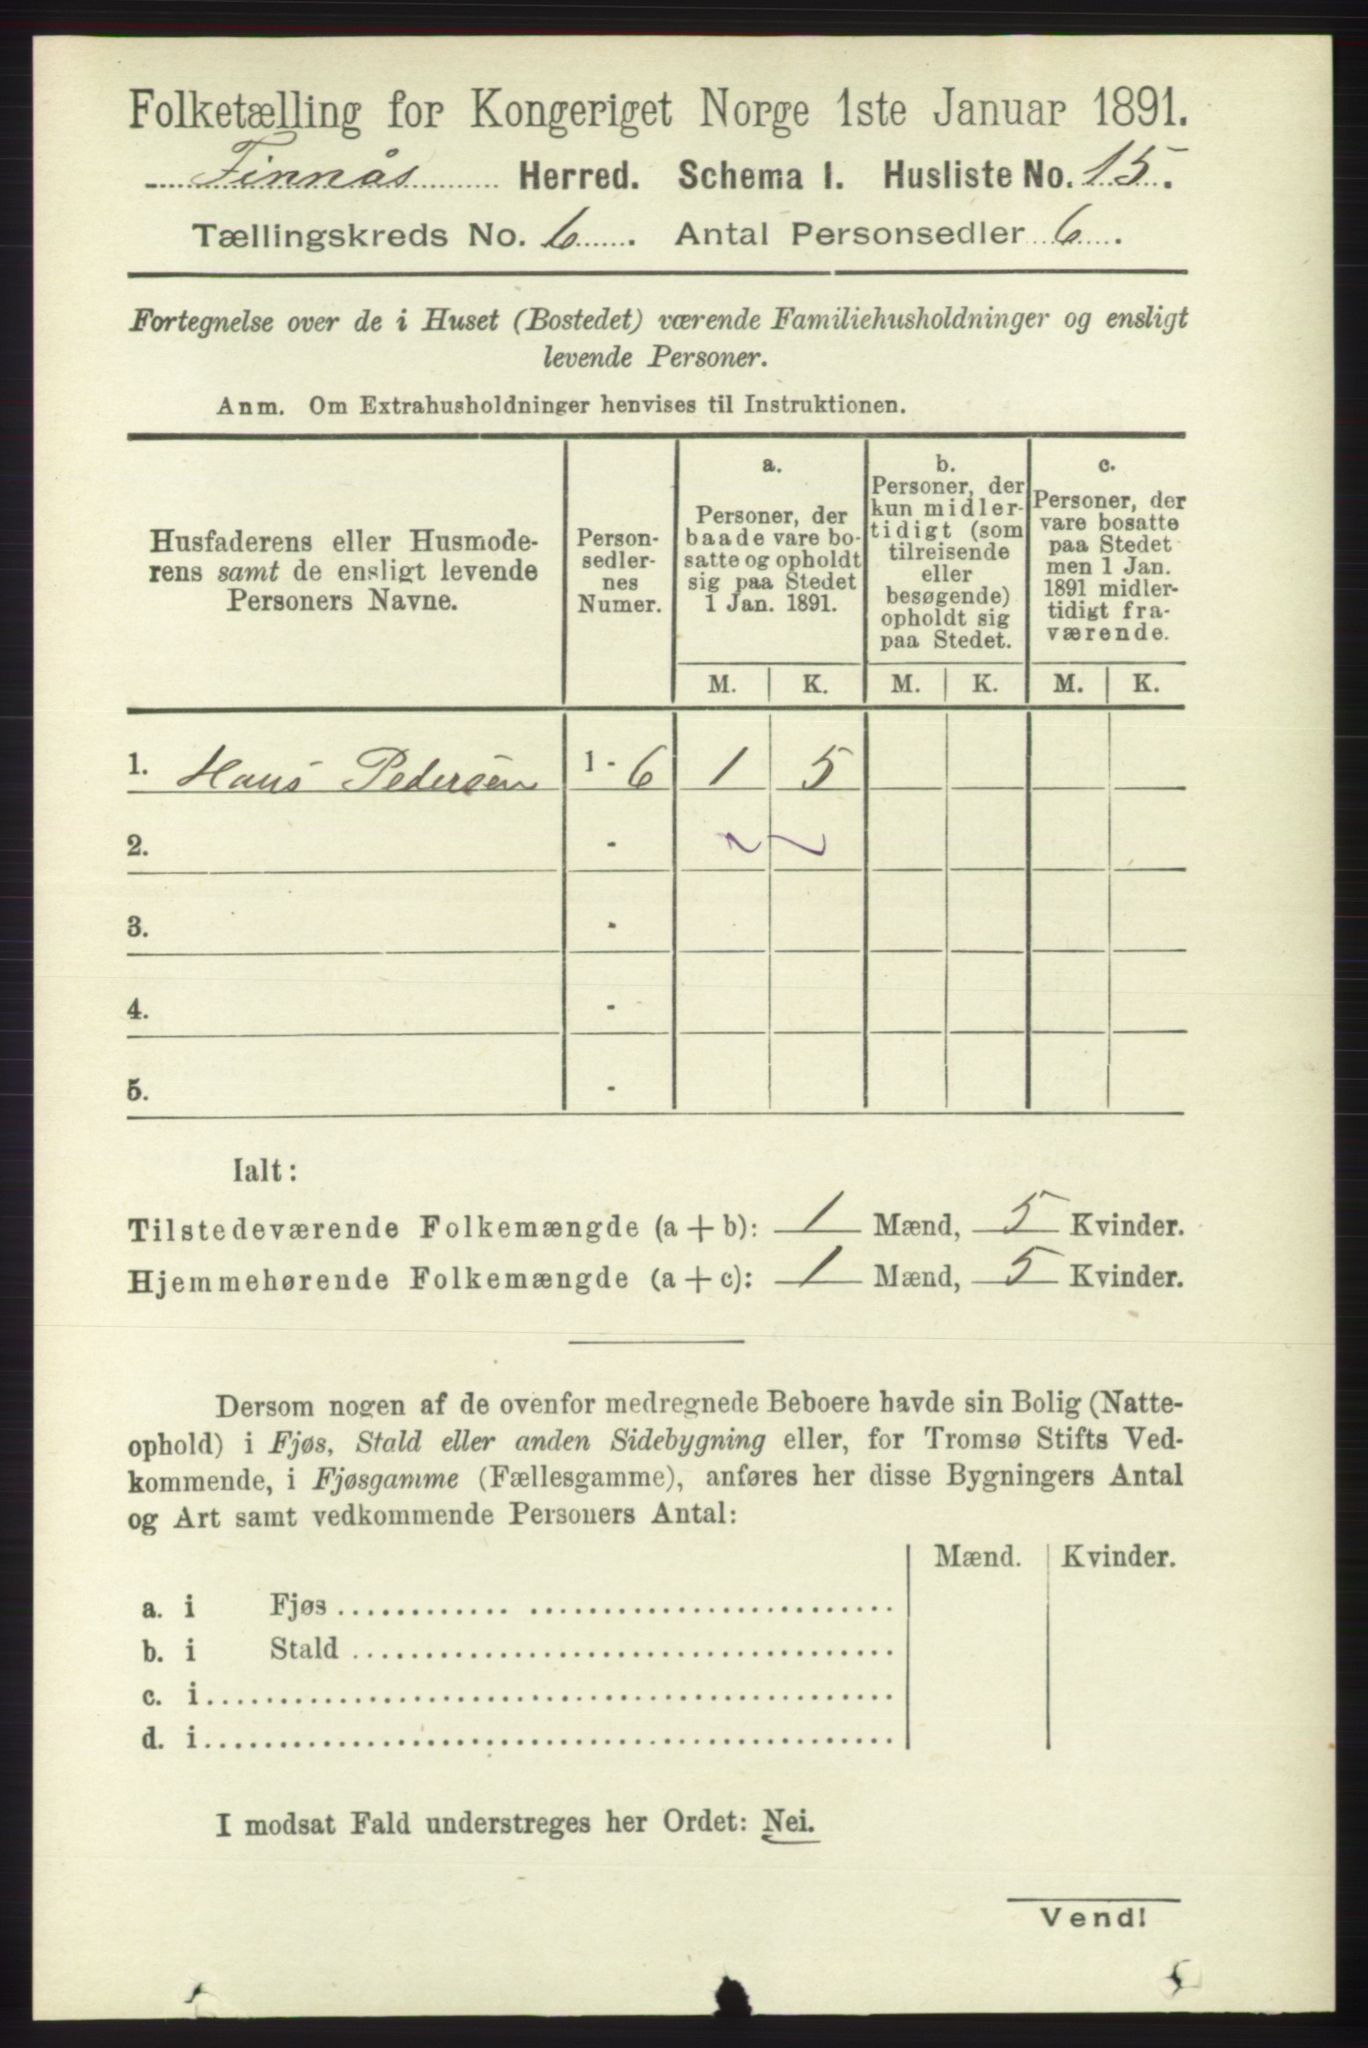 Folketælling for Kongeriget Norge 1ste Januar 1891.
Finnås Herred. Schema I. Husliste No. 15.
Tællingskreds No. 6. Antal Personsedler 6.
Fortegnelse over de i Huset (Bostedet) værende Familiehusholdninger og ensligt
levende Personer.
Anm. Om Extrahusholdninger henvises til Instruktionen.
Husfaderens eller Husmode-
rens samt de ensligt levende
Personers Navne.
Person-
sedler-
nes
Numer.
a.
Personer, der
baade vare bo-
satte og opholdt
sig paa Stedet
1 Jan. 1891.
b.
Personer, der
kun midler-
tidigt (som
tilreisende
eller
besøgende)
opholdt sig
paa Stedet.
c.
Personer, der
vare bosatte
paa Stedet
men 1 Jan.
1891 midler-
tidigt fra-
værende.
M. K. M. K. M. K.
1. Hans Pedersen 1 - 6 1 5
2. -
3. -
4. -
5. -
Ialt:
Tilstedeværende Folkemængde (a + b): 1 Mænd, 5 Kvinder.
Hjemmehørende Folkemængde (a + c): 1 Mænd, 5 Kvinder.
Dersom nogen af de ovenfor medregnede Beboere havde sin Bolig (Natte-
ophold) i Fjøs, Stald eller anden Sidebygning eller, for Tromsø Stifts Ved-
kommende, i Fjøsgamme (Fællesgamme), anføres her disse Bygningers Antal
og Art samt vedkommende Personers Antal:
Mænd. Kvinder.
a. i Fjøs
b. i Stald
c. i
d. i
I modsat Fald understreges her Ordet: Nei.
Vend!